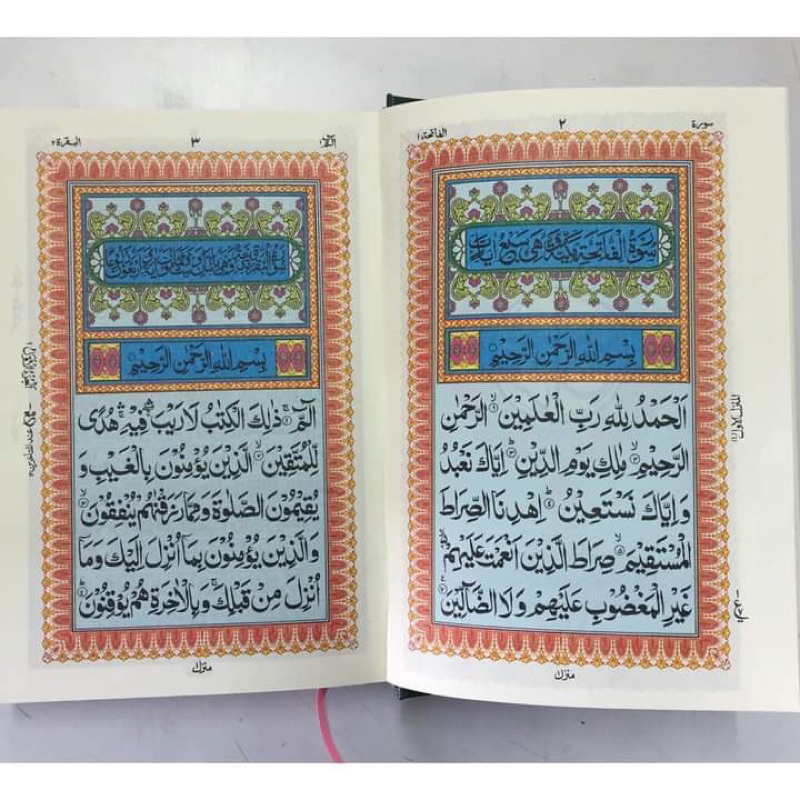 سورة
٢
الفاتحة ١
سورة الفاتحة مكية وهي سبع ايات
بِسْمِ اللّٰهِ الرَّحْمٰنِ الرَّحِيْمِ
اَلْحَمْدُ لِلّٰهِ رَبِّ الْعٰلَمِيْنَ ۙ۱ الرَّحْمٰنِ
الرَّحِيْمِ ۙ۲ مٰلِكِ يَوْمِ الدِّيْنِ ۳ اِيَّاكَ نَعْبُدُ
وَاِيَّاكَ نَسْتَعِيْنُ ۴ اِهْدِنَا الصِّرَاطَ
الْمُسْتَقِيْمَ ۵ صِرَاطَ الَّذِيْنَ اَنْعَمْتَ عَلَيْهِمْ
غَيْرِ الْمَغْضُوْبِ عَلَيْهِمْ وَلَا الضَّآلِّيْنَ
المنزل الاول ١
منزل
الٓمّٓ ١
٣
البقرة ٢
بِسْمِ اللّٰهِ الرَّحْمٰنِ الرَّحِيْمِ
الٓمّٓ ۱ ذٰلِكَ الْكِتٰبُ لَا رَيْبَ فِيْهِ هُدًى
لِّلْمُتَّقِيْنَ ۲ الَّذِيْنَ يُؤْمِنُوْنَ بِالْغَيْبِ وَ
يُقِيْمُوْنَ الصَّلٰوةَ وَمِمَّا رَزَقْنٰهُمْ يُنْفِقُوْنَ ۳
وَالَّذِيْنَ يُؤْمِنُوْنَ بِمَآ اُنْزِلَ اِلَيْكَ وَمَآ
اُنْزِلَ مِنْ قَبْلِكَ وَبِالْاٰخِرَةِ هُمْ يُوْقِنُوْنَ ۴
منزل